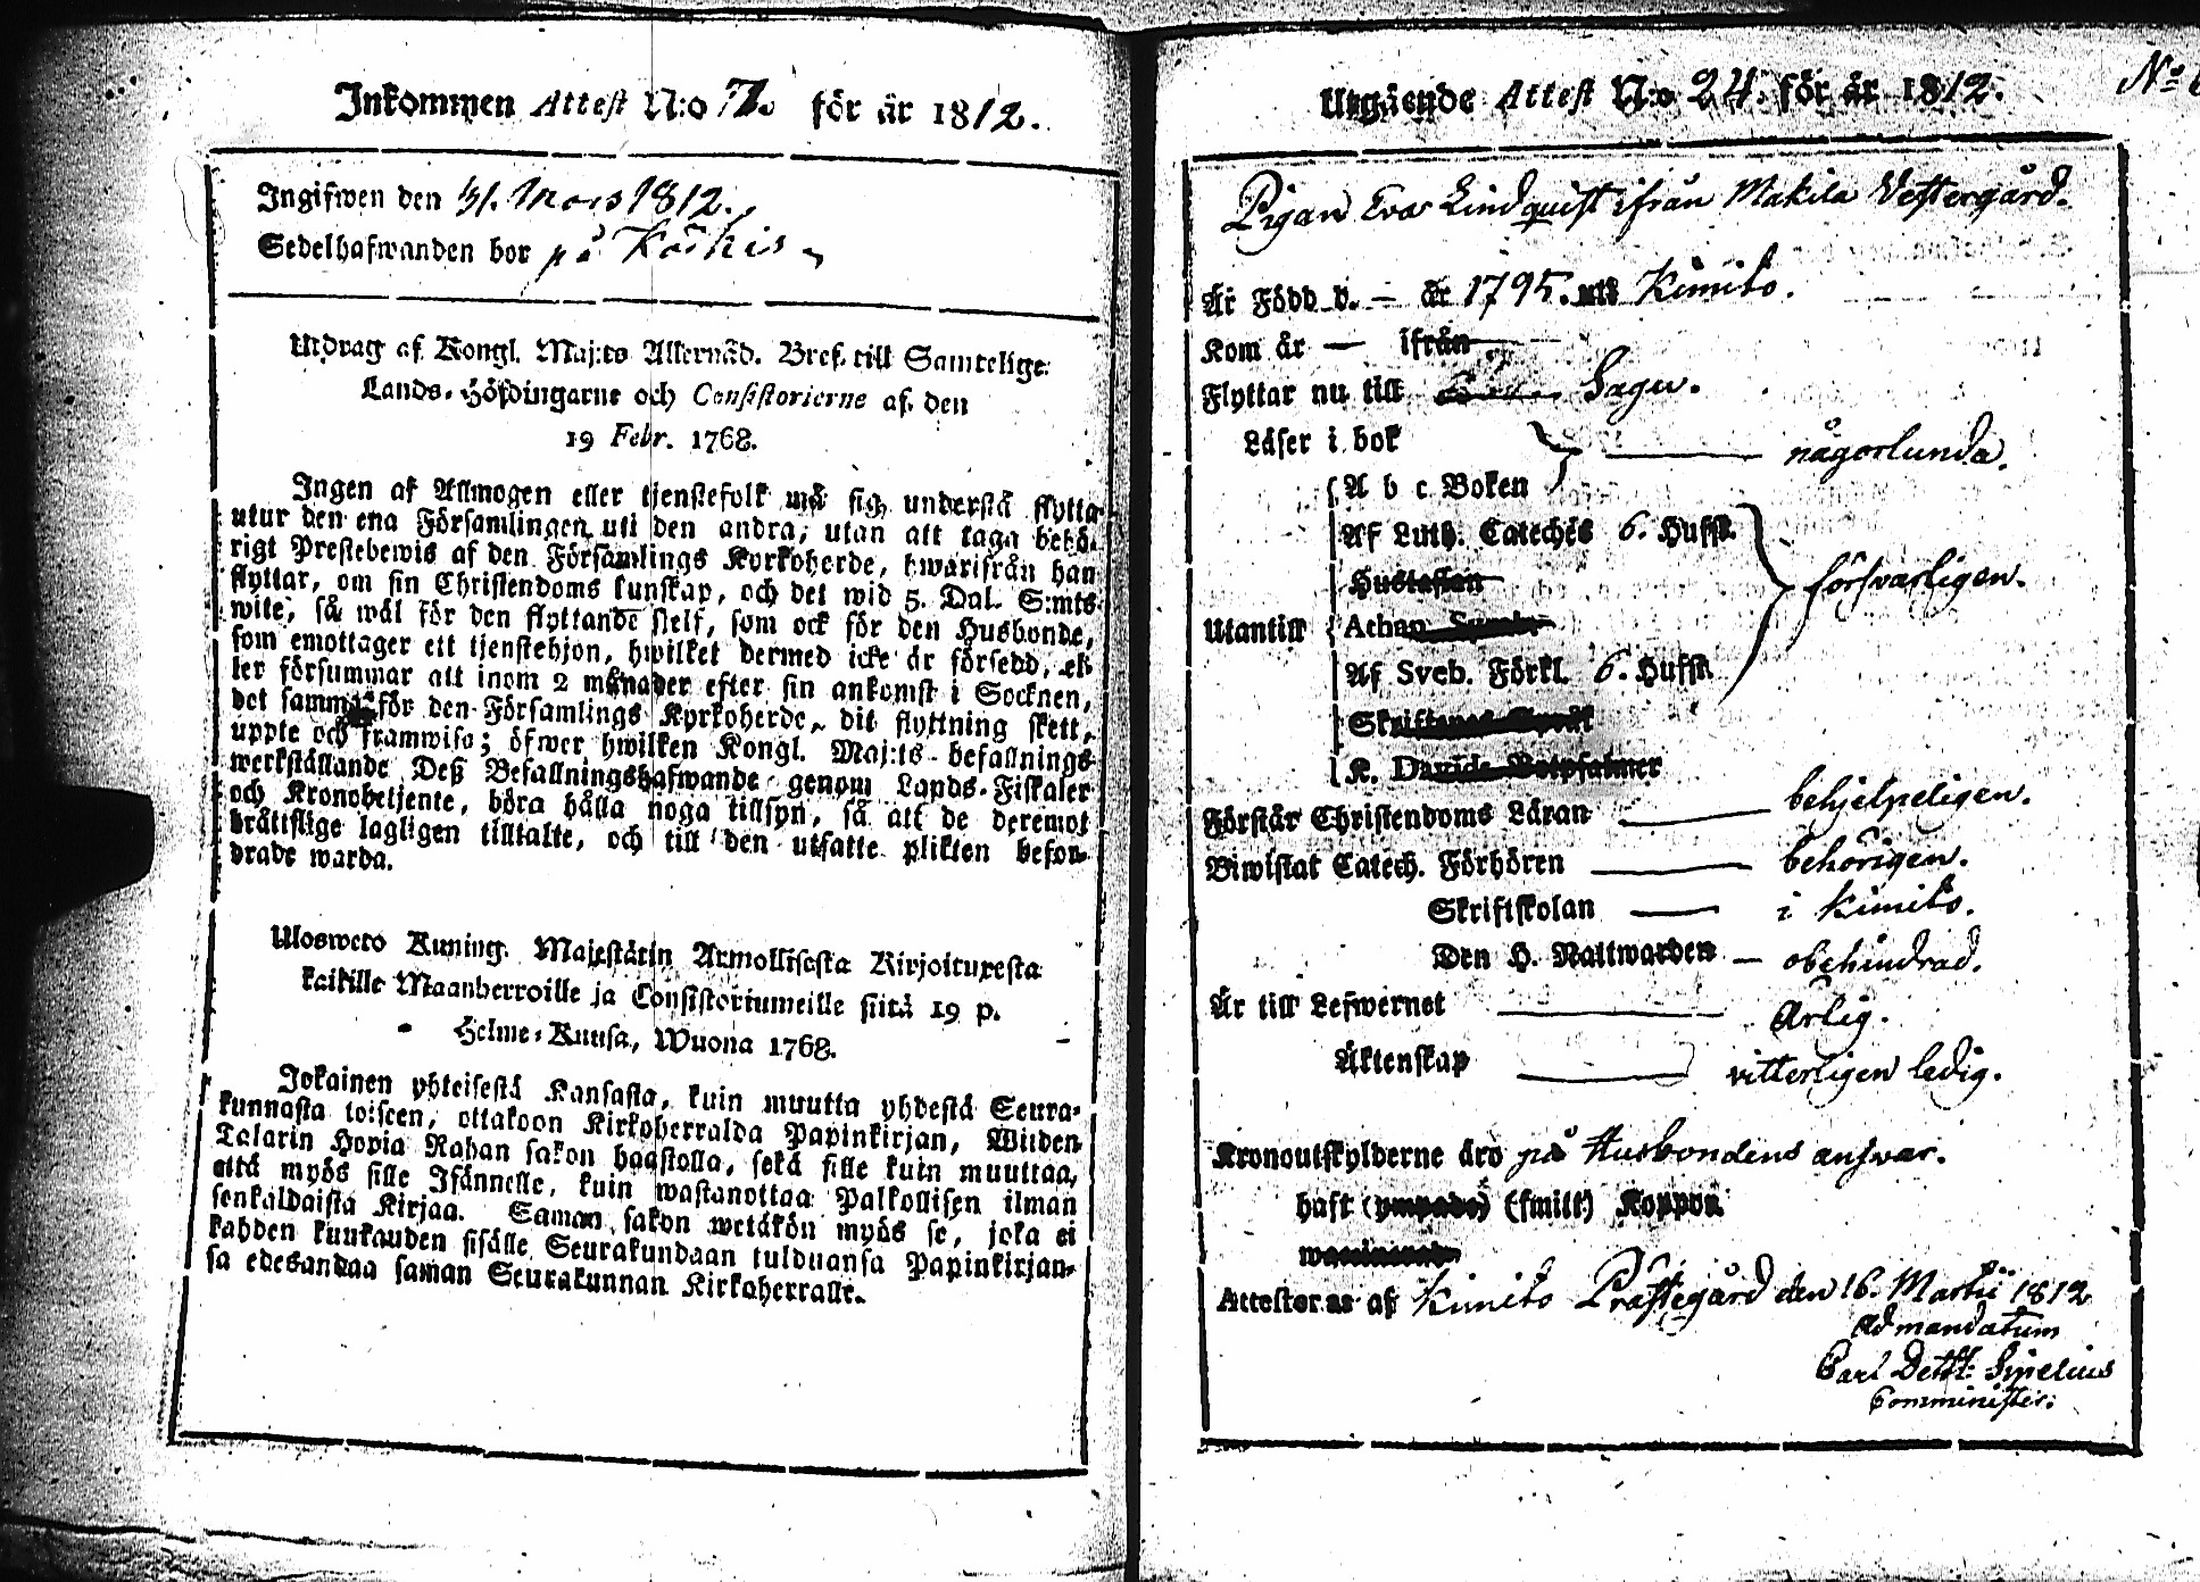 Inkommen Attest N:o 7. för år 1812.
Ingifwen den 31. Mars 1812.
Sedelhafwanden bor på Koskis
Utdrag af Kongl. Maj:ts Allernåd. Bref till Samtelige
Lands-Höfdingarne och Consistorierne af den
19 Febr. 1768.
Ingen af Allmogen eller tjenstefolk må sig understå flytta
utur den ena Församlingen uti den andra, utan att taga behö-
rigt Prestebewis af den Församlings Kyrkoherde, hwarifrån han
flyttar, om sin Christendoms kunskap, och det wid 5. Dal. S:mts
wite, så wäl för den flyttande sielf, som ock för den Husbonde,
som emottager ett tjenstehjon, hwilket dermed icke är försedd, el-
ler försummar att inom 2 månader efter sin ankomst i Socknen,
det samma för den Församlings Kyrkoherde, dit flyttning skett,
uppte och framwisa; öfwer hwilken Kongl. Maj:ts befallnings
werkställande Deß Befallningshafwande genom Lands-Fiskaler
och Kronobetjente, böra hålla noga tillsyn, så att de deremot
bråttslige lagligen tilltalte, och till den utsatte plikten befor-
drade warda.
Ulosweto Kuning. Majestätin Armollisesta Kirjoituxesta
kaikille Maanherroille ja Consistoriumeille siitä 19 p.
Helme-Kuusa, Wuona 1768.
Jokainen yhteisestä Kansasta, kuin muutta yhdestä Seura-
kunnasta toiseen, ottakoon Kirkoherralda Papinkirjan, Wiiden
Talarin Hopia Rahan sakon haastolla, sekä sille kuin muuttaa,
että myös sille Isännelle, kuin wastanottaa Palkollisen ilman
senkaldaista Kirjaa. Saman sakon wetäkön myös se, joka ei
kahden kuukauden sisälle Seurakundaan tulduansa Papinkirjan-
sa edesandaa saman Seurakunnan Kirkoherralle.
Utgående Attest N:o 24. för år 1812.
No
Pigan Eva Lindquist ifrån Makila Vestergård.
Är Född d. — år 1795. uti Kimito.
Kom år — ifrån
Flyttar nu till Sagu.
Läser i bok
någorlunda.
A b c Boken
Af Luth. Cateches 6. Hufst.
Hustaflan
försvarligen.
Utantill Athan. Symb.
Af Sveb. Förkl. 6. Hufst.
Skriftenes Språk
K. Davids Botpsalmer
Förstår Christendoms Läran behjelpeligen.
Biwistat Catech. Förhören behörigen.
Skriftskolan i Kimito.
Den H. Nattwarden — obehindrad.
Är till Lefwernet ärlig.
Äktenskap vitterligen ledig.
Kronoutskylderne äro på Husbondens answar.
haft (ympade) (smitt) Koppor.
Attesteras af Kimito Prästegård den 16. Martii 1812
Ad mandatum
Carl Detl: Sipelius
Comminister.